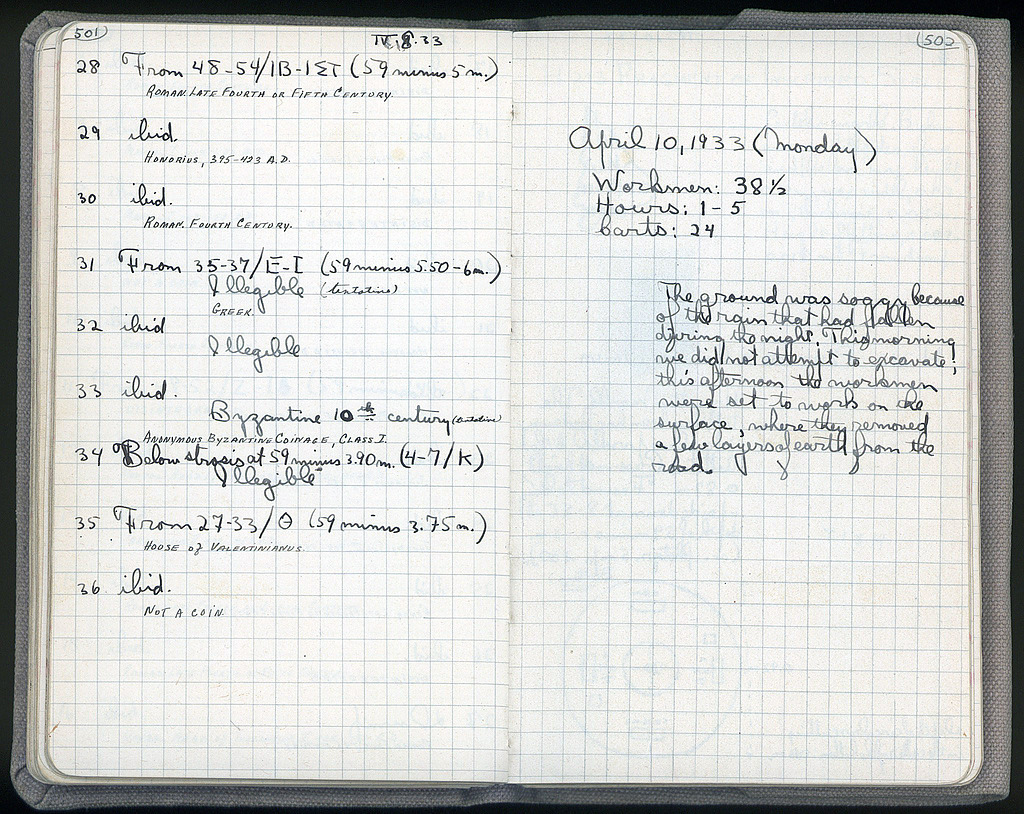 501
IV.8.33
28 From 48-54/IB-IΣT (59 minus 5 m.)
ROMAN. LATE FOURTH OR FIFTH CENTURY.
29 ibid.
HONORIUS, 395-423 A.D.
30 ibid.
ROMAN. FOURTH CENTURY.
31 From 35-37/E-I (59 minus 5.50-6m.)
Illegible (tentative)
GREEK.
32 ibid
Illegible
33 ibid.
Byzantine 10th century (tentative)
ANONYMOUS BYZANTINE COINAGE, CLASS I.
34 Below strosis at 59 minus 3.90m. (4-7/K)
Illegible
35 From 27-33/Θ (59 minus 3.75m.)
HOUSE OF VALENTINIANUS.
36 ibid.
NOT A COIN.
502
April 10, 1933 (Monday)
Workmen: 38½
Hours: 1-5
Carts: 24
The ground was soggy because
of the rain that had fallen
during the night. This morning
we did not attempt to excavate;
this afternoon the workmen
were set to work on the
surface, where they removed
a few layers of earth from the
road.